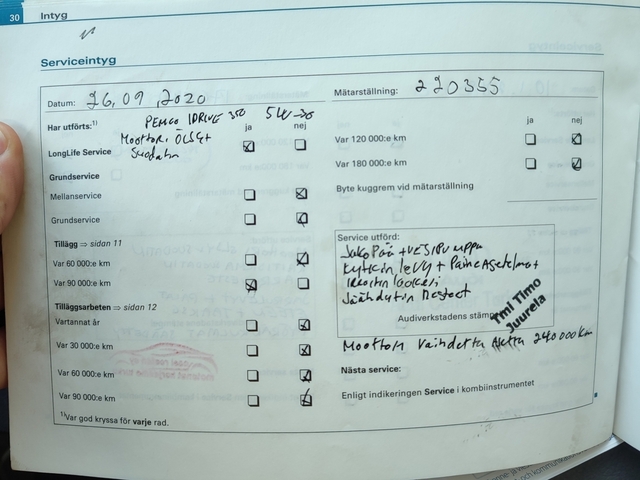 30
Intyg
Serviceintyg
Datum: 26,09,2020
Mätarställning: 220355
Har utförts:¹⁾
PEMCO IDRIVE 350 5W-30
ja
nej
LongLife Service
Moottori ÖLJyt
Suodatin
Grundservice
Mellanservice
Grundservice
Tillägg ⇒ sidan 11
Var 60 000:e km
Var 90 000:e km
Tilläggsarbeten ⇒ sidan 12
Vartannat år
Var 30 000:e km
Var 60 000:e km
Var 90 000:e km
¹⁾Var god kryssa för varje rad.
ja
nej
Var 120 000:e km
Var 180 000:e km
Byte kuggrem vid mätarställning
Service utförd:
JakoPää + VESIPUMPPU
Kytkin levy + Paine Asetelma +
laakeri
Jäähdytin Nesteet
Audiverkstadens stäm
Tmi Timo
Juurela
Moottori Vaihdettu 240 000 Km
Nästa service:
Enligt indikeringen Service i kombiinstrumentet